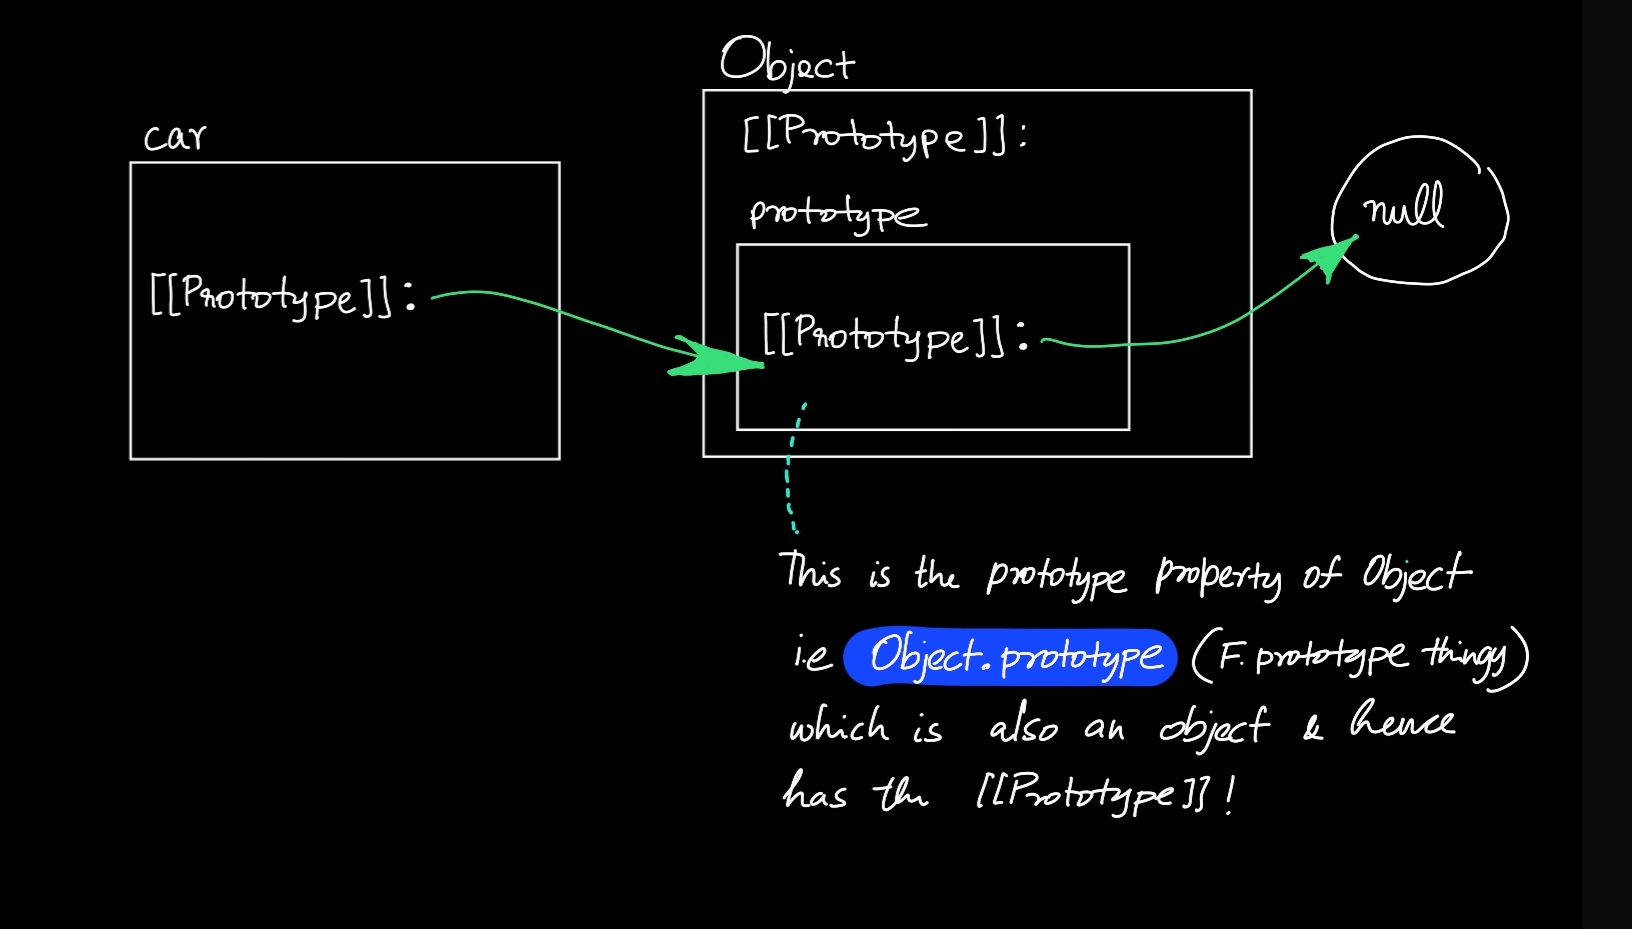 Object
[[Prototype]]:
car
prototype
null
[[Prototype]]:
[[Prototype]]:
This is the prototype property of Object
i.e Object.prototype (F.prototype thingy)
which is also an object & hence
has the [[Prototype]]!